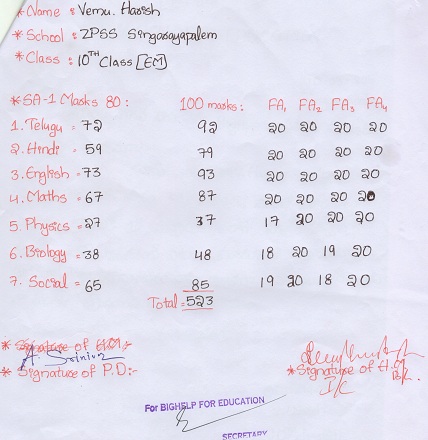 * Name : Vemu. Harish
* School : ZPSS Singarayapalem
* Class : 10TH Class [EM]
* SA-1 Marks 80 : 100 marks : FA1 FA2 FA3 FA4
1. Telugu = 72 92 20 20 20 20
2. Hindi = 59 79 20 20 20 20
3. English = 73 93 20 20 20 20
4. Maths = 67 87 20 20 20 20
5. Physics = 27 37 17 20 20 20
6. Biology = 38 48 18 20 19 20
7. Social = 65 85 19 20 18 20
Total = 523
* Signature of
* Signature of P.D:-
* Signature of H.M
I/C
For BIGHELP FOR EDUCATION
SECRETARY